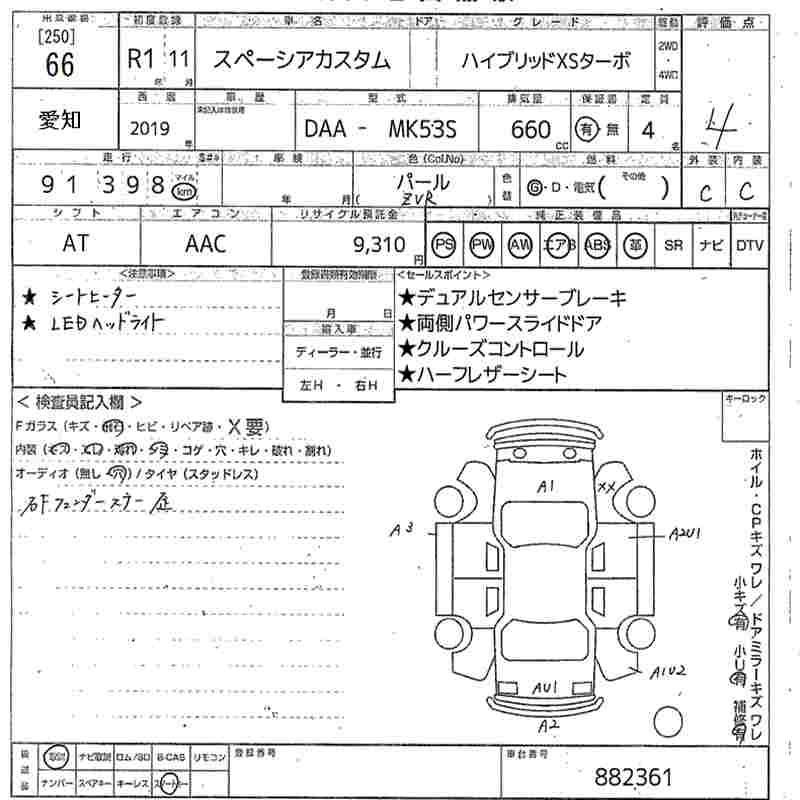 出品番号 初度登録 車名 ドア グレード 駆動 評価点
[250]
66 R1 11 スペーシアカスタム ハイブリッドXSターボ 2WD・4WD
年 月
西暦 車歴 型式 排気量 保証書 定員
愛知 2019 年 DAA - MK53S 660 CC 有・無 4 名 4
走行 車検 色(Col.No) 燃料 外装 内装
91398 マイル km 年 月 パール ZVR 色替 G・D・電気(その他) C C
シフト エアコン リサイクル預託金 純正装備品
AT AAC 9,310 円 PS PW AW エアB ABS 革 SR ナビ DTV
<注意事項> 登録書類有効期限 <セールスポイント>
★ シートヒーター
★ LEDヘッドライト
月 日
輸入車
ディーラー・並行
左H ・ 右H
★デュアルセンサーブレーキ
★両側パワースライドドア
★クルーズコントロール
★ハーフレザーシート
< 検査員記入欄 > キーロック
Fガラス (キズ・飛石・ヒビ・リペア跡・X要)
内装 (キズ・スレ・汚れ・シミ・コゲ・穴・キレ・破れ・割れ)
オーディオ (無し・穴) / タイヤ (スタッドレス)
右Fフェンダーステー 歪
A1 XX
A3 A2U1
A1U2
AU1
A2
ホイル・CPキズワレ/ドアミラーキズワレ
小キズ有 小U有 補修有
取説 ナビ取説 ロム/SD B-CAS リモコン 登録番号 車台番号
ナンバー スペアキー キーレス スマートキー 882361